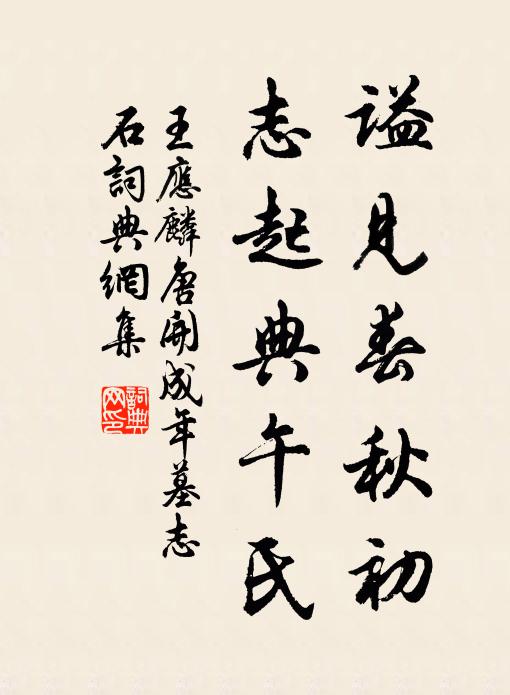 谥見春秋初
志起典午氏
王應麟唐開成年墓志
石詞典網集
詞典網印